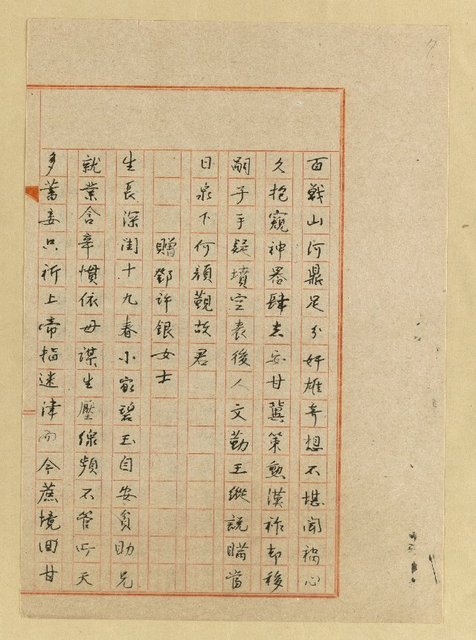 面戰山河鼎足分奸雄奇想不堪聞禍心
久抱窺神器肆志安甘冀策勳漢祚却移
嗣子手疑墳空表後人文勤王縱說瞞當
日泉下何顏覲故君
贈鄧許銀女士
生長深閨十九春小家碧玉自安貧助兄
就業含辛慣依母謀生壓線頻不管所天
多蓄妾只祈上帝指迷津而今蔗境回甘